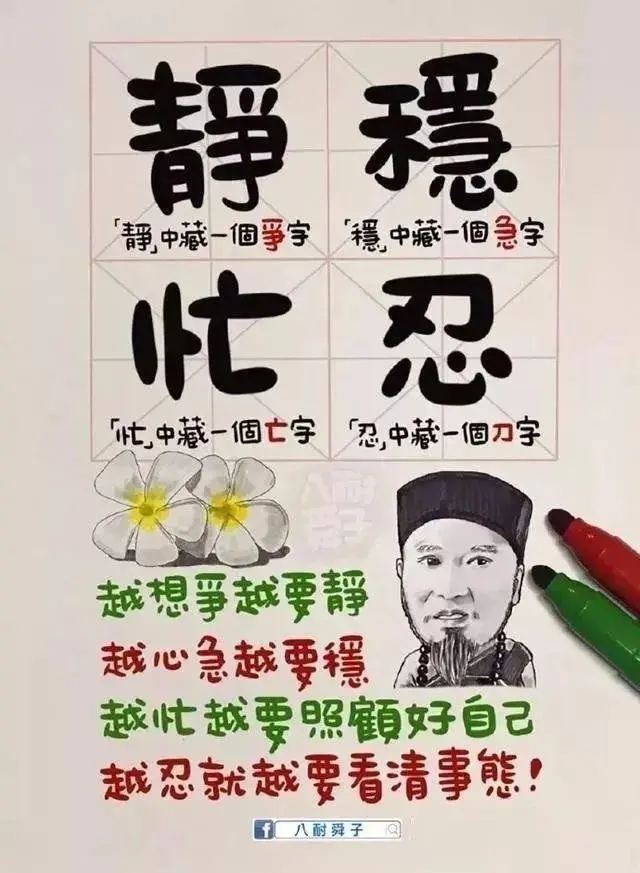 靜 穩
「靜」中藏一個爭字 「穩」中藏一個急字
忙 忍
「忙」中藏一個亡字 「忍」中藏一個刀字
八耐
舜子
越想爭越要靜
越心急越要穩
越忙越要照顧好自己
越忍就越要看清事態!
f 八耐舜子